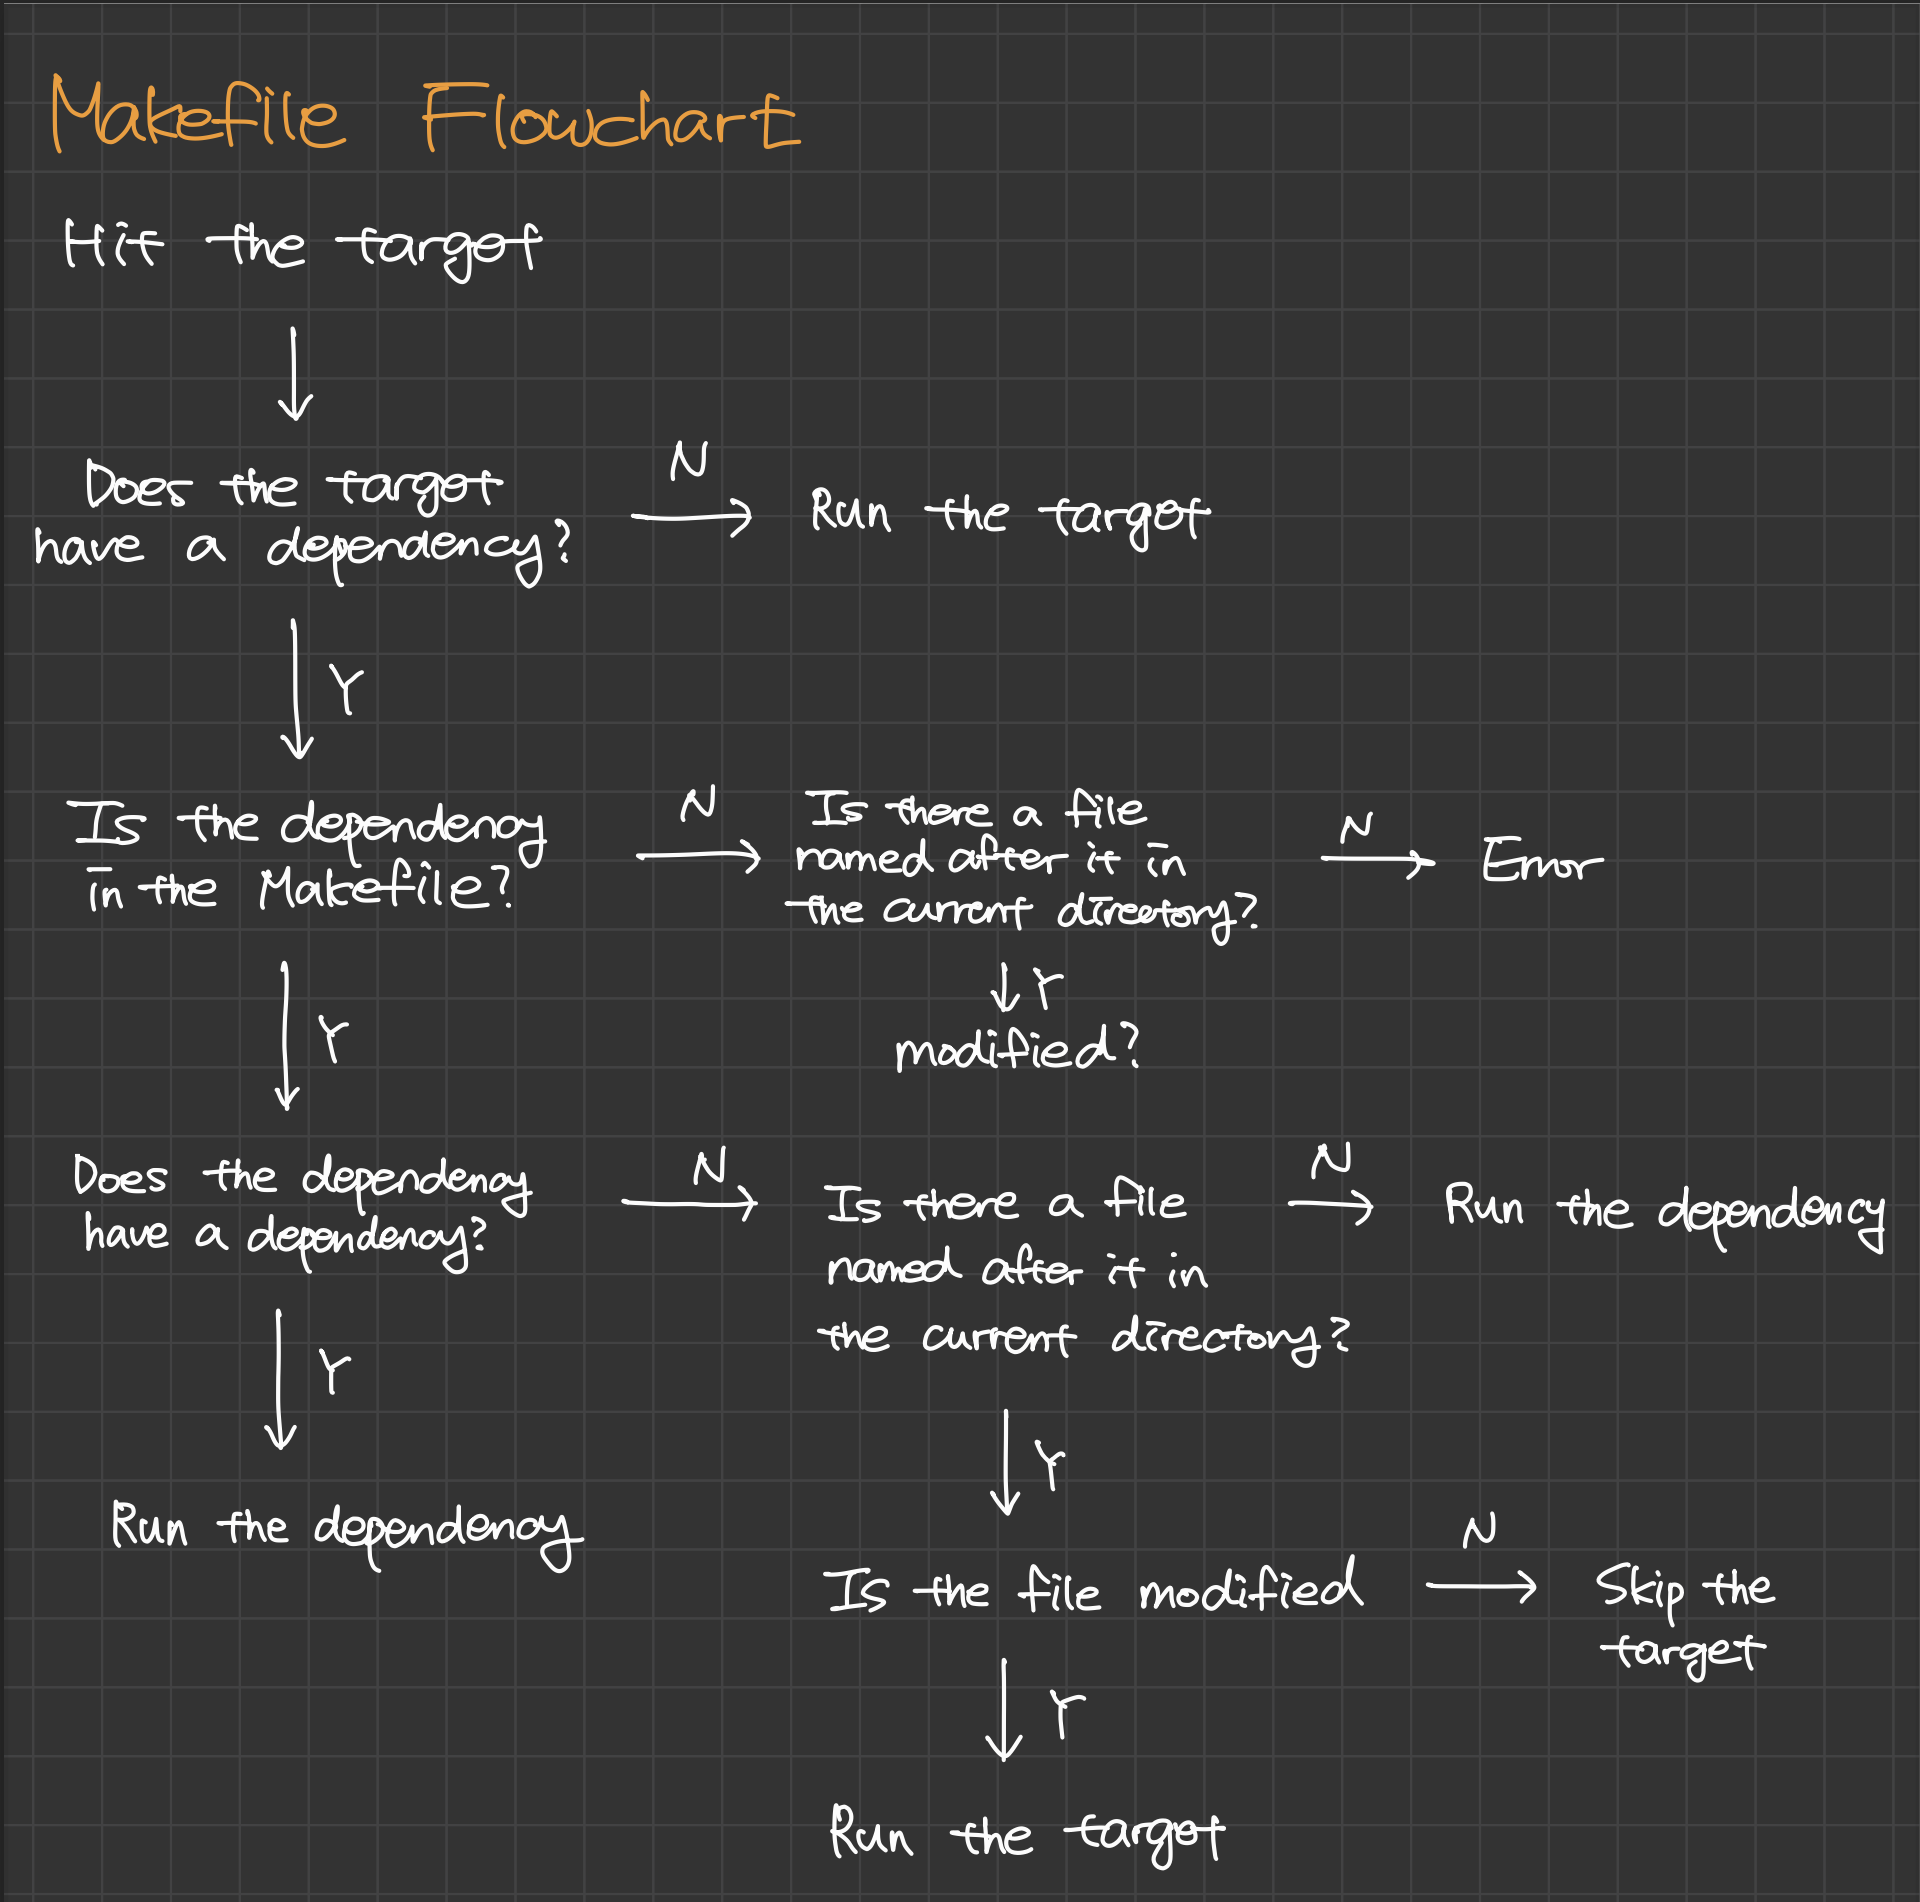 Makefile Flowchart
Hit the target
Does the target
have a dependency?
N
Run the target
Y
Is the dependency
in the Makefile?
N
Is there a file
named after it in
the current directory?
N
Error
Y
modified?
Y
Does the dependency
have a dependency?
N
Is there a file
named after it in
the current directory?
N
Run the dependency
Y
Run the dependency
Y
Is the file modified
N
Skip the
target
Y
Run the target